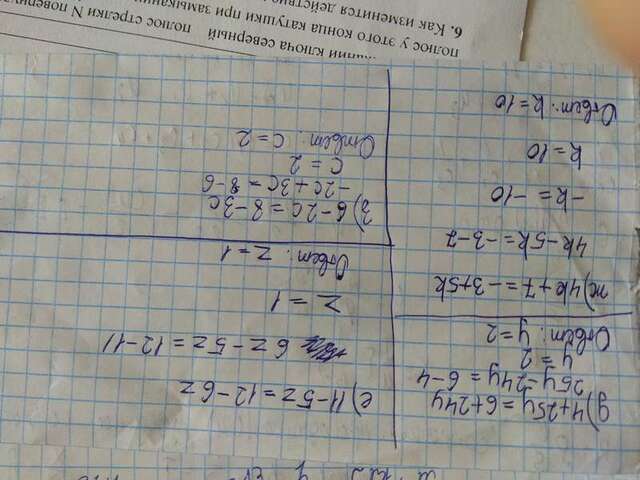 д) 4+25y=6+24y
25y-24y=6-4
y=2
Ответ: y=2
ж) 4k+7=-3+5k
4k-5k=-3-7
-k=-10
k=10
Ответ: k=10
е) 11-5z=12-6z
6z-5z=12-11
z=1
Ответ: z=1
з) 6-2c=8-3c
-2c+3c=8-6
c=2
Ответ: c=2
ключа северный полюс стрелки N
полюс у этого конца катушки при замыкании
6. Как изменится